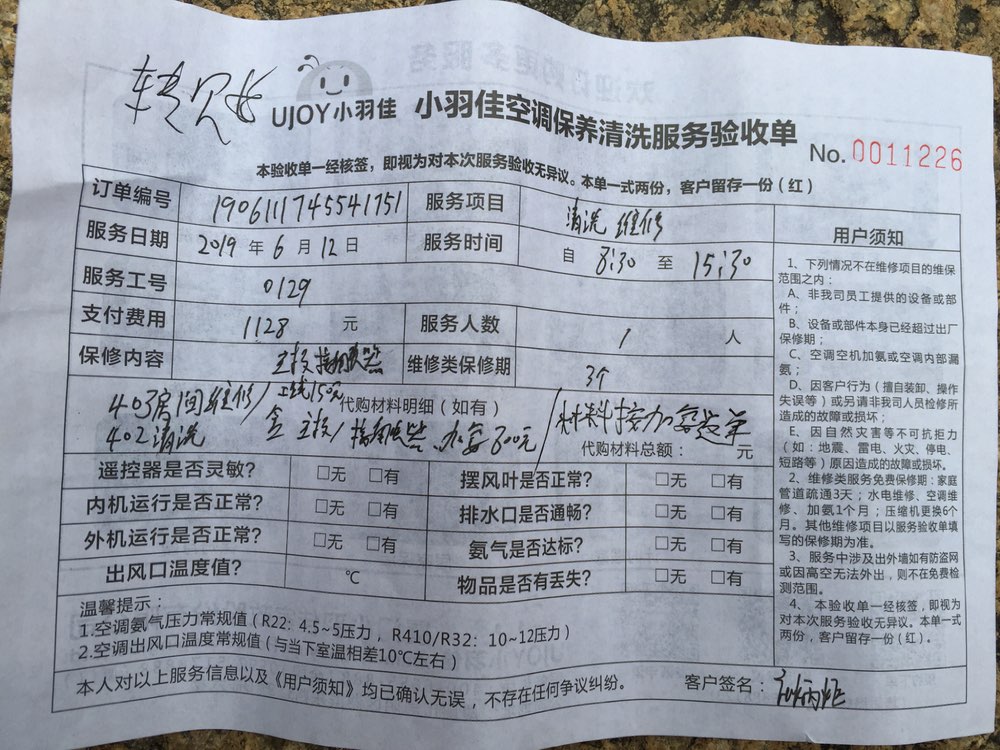 UJOY小羽佳 小羽佳空调保养清洗服务验收单
No. 0011226
本验收单一经核签，即视为对本次服务验收无异议。本单一式两份，客户留存一份（红）
订单编号 1906111745541751 服务项目 清洗 维修
服务日期 2019 年 6 月 12 日 服务时间 自 8:30 至 15:30
服务工号 0129
支付费用 1128 元 服务人数 1 人
保修内容 主板 维修类保修期
403房间维修
代购材料明细（如有）
402清洗
代购材料总额： 元
遥控器是否灵敏? □无 □有 摆风叶是否正常? □无 □有
内机运行是否正常? □无 □有 排水口是否通畅? □无 □有
外机运行是否正常? □无 □有 氨气是否达标? □无 □有
出风口温度值? ℃ 物品是否有丢失? □无 □有
温馨提示：
1.空调氨气压力常规值（R22: 4.5~5压力， R410/R32：10~12压力）
2.空调出风口温度常规值（与当下室温相差10℃左右）
本人对以上服务信息以及《用户须知》均已确认无误，不存在任何争议纠纷。 客户签名：
用户须知
1、下列情况不在维修项目的维保
范围之内：
A、非我司员工提供的设备或部
件；
B、设备或部件本身已经超过出厂
保修期；
C、空调空机加氨或空调内部漏
氨；
D、因客户行为（擅自装卸、操作
失误等）或另请非我司人员检修所
造成的故障或损坏；
E、因自然灾害等不可抗拒力
（如：地震、雷电、火灾、停电、
短路等）原因造成的故障或损坏。
2、维修类服务免费保修期：家庭
管道疏通3天；水电维修、空调维
修、加氨1个月；压缩机更换6个
月。其他维修项目以服务验收单填
写的保修期为准。
3、服务中涉及出外墙如有防盗网
或因高空无法外出，则不在免费检
测范围。
4、 本验收单一经核签，即视为
对本次服务验收无异议。本单一式
两份，客户留存一份（红）。